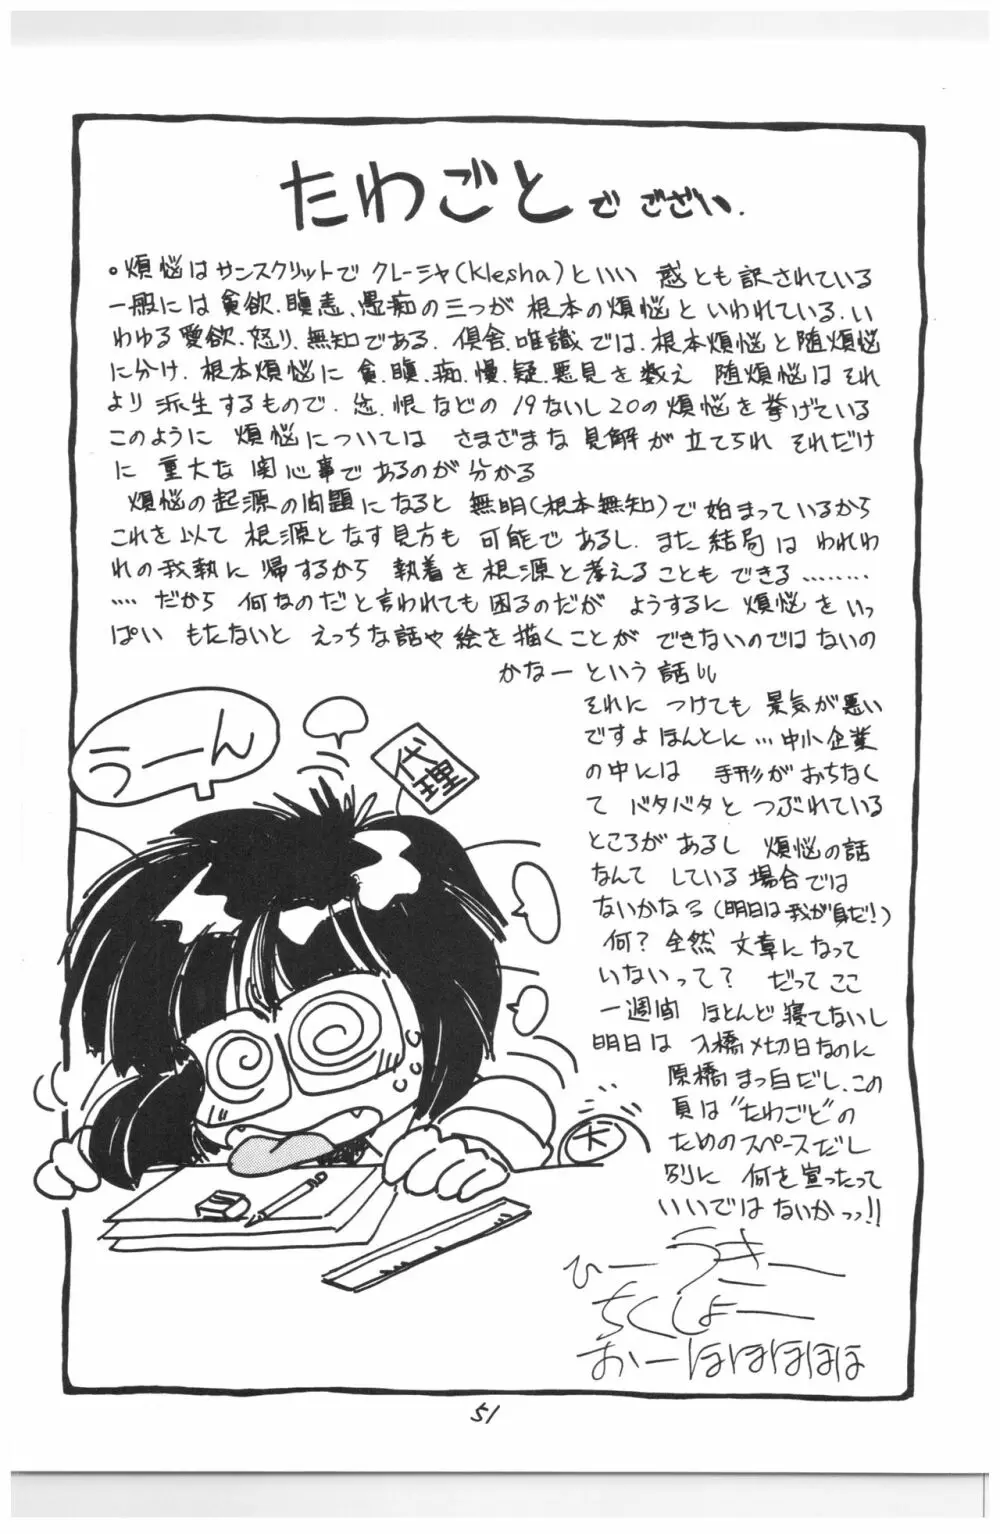 たわごとでござい.
。煩悩はサンスクリットでクレーシャ(Klesha)といい 惑とも訳されている
一般には貪欲.瞋恚、愚痴の三つが根本の煩悩といわれている.い
わゆる愛欲.怒り.無知である. 倶舎.唯識では.根本煩悩と随煩悩
に分け.根本煩悩に貪.瞋.痴.慢.疑.悪見を数え 随煩悩はそれ
より派生するもので.忿.恨などの19ないし20の煩悩を挙げている
このように 煩悩については さまざまな見解が立てられ それだけ
に 重大な関心事であるのが分かる
煩悩の起源の問題になると 無明(根本無知)で始まっているから
これを以て 根源となす見方も 可能であるし.また結局は われわ
れの我執に 帰するから 執着を根源と考えることもできる………
…. だから 何なのだと言われても困るのだが ようするに 煩悩をいっ
ぱい もたないと えっちな話や絵を描くことが できないのではないの
かなーという話
それに つけても 景気が悪い
ですよ ほんとに…中小企業
の中には 手形がおちなく
て バタバタと つぶれている
ところがあるし 煩悩の話
なんて している場合では
ないかなぁ(明日は我が身だ!)
何? 全然 文章になって
いないって? だってここ
一週間 ほとんど寝てないし
明日は 入稿〆切日なのに
原稿まっ白だし.この
頁は"たわごと"の
ためのスペースだし
別に 何を宣ったって
いいではないかっっ!!
ひー うきー
ちくしょー
おーほほほほほ
うーん
代理
大
51